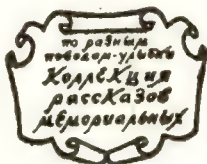 по разным
поводам-улыбки
КоллеКция
рассКазов
мемориальных